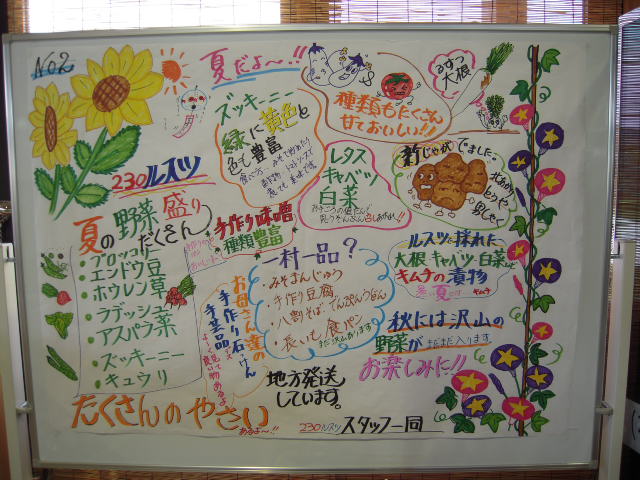 No2
夏だよ〜!!
230ルスツ
夏の野菜盛り
たくさん
・ブロッコリー
・エンドウ豆
・ホウレン草
・ラデッシュ
・アスパラ菜
・ズッキーニー
・キュウリ
たくさんのやさい
あるよ〜!!
ズッキーニー
緑に黄色と
色も豊富
手作り味噌
種類豊富
お母さん達の
手作り石っけん
手芸品
種類もたくさん
甘くておいしい!!
るすつ
大根
レタス
キャベツ
白菜
新じゃが
でました。
北あかり
とうや
男しゃく
一村一品?
・みそまんじゅう
・手作り豆腐
・八割そば でんぷんうどん
・長いも食パン
まだ沢山あります
地方発送
しています。
ルスツで採れた
大根 キャベツ 白菜
キムチの漬物
秋には沢山の
野菜がまだまだ入ります
お楽しみに!!
230ルスツ スタッフ一同